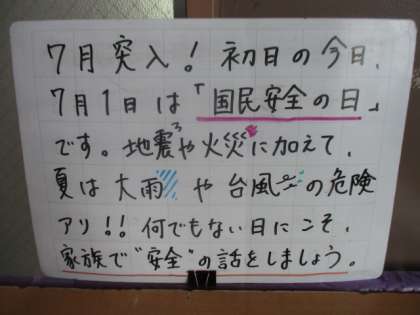 7月突入！初日の今日、
7月1日は「国民安全の日」
です。地震や火災に加えて、
夏は大雨や台風の危険
アリ！！何でもない日にこそ、
家族で"安全"の話をしましょう。